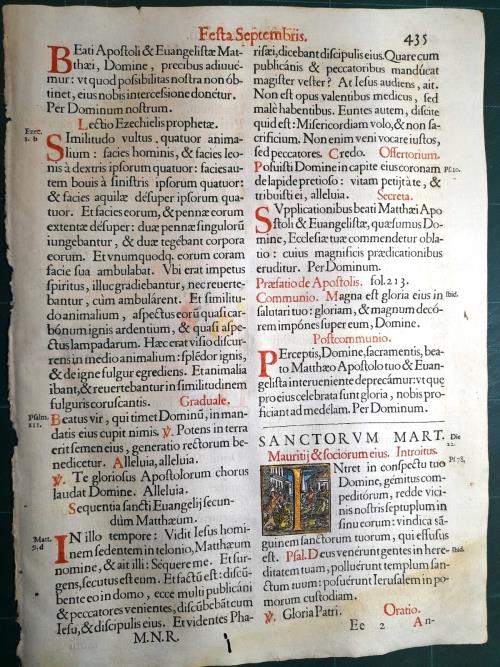 Festa Septembris.
435
Beati Apostoli & Euangelistæ Mat-
thæi, Domine, precibus adiuué-
mur: vt quod possibilitas nostra non ób-
tinet, eius nobis intercessione donétur.
Per Dominum nostrum.
Lectio Ezechielis prophetæ.
Ezec.
1. b
Similitudo vultus quatuor anima-
lium: facies hominis, & facies leo-
nis à dextris ipsorum quatuor: facies au-
tem bouis à sinistris ipsorum quatuor:
& facies aquilæ désuper ipsorum qua-
tuor. Et facies eorum, & pennæ eorum
extentæ désuper: duæ pennæ singulorũ
iungebantur, & duæ tegébant corpora
eorum. Et vnumquodq. eorum coram
facie sua ambulabat. Vbi erat impetus
spiritus, illuc gradiebantur, nec reuerte-
bantur, cùm ambulárent. Et similitu-
do animalium, aspectus eorũ quasi car-
bónum ignis ardentium, & quasi aspe-
ctus lampadarum. Hæc erat visio discur-
rens in medio animalium: splédor ignis,
& de igne fulgur egrediens. Et animalia
ibant, & reuertebantur in similitudinem
fulguris coruscantis. Graduale.
Psalm.
111.
Beatus vir, qui timet Dominũ, in man-
datis eius cupit nimis. ℣. Potens in terra
erit semen eius, generatio rectorum be-
nedicetur. Alleluia, alleluia.
℣. Te gloriosus Apostolorum chorus
laudat Domine. Alleluia.
Sequentia sancti Euangelij secun-
dùm Matthæum.
Matt.
9. d
In illo tempore: Vidit Iesus homi-
nem sedentem in telonio, Matthæum
nomine, & ait illi: Séquere me. Et sur-
gens, secutus est eum. Et factũ est: discũ-
bente eo in domo, ecce multi publicáni
& peccatores venientes, discũbébãt cum
Iesu, & discipulis eius. Et videntes Pha-
M.N.R.
risæi, dicebant discipulis eius. Quare cum
publicánis & peccatoribus mandúcat
magister vester? At Iesus audiens, ait.
Non est opus valentibus medicus, sed
malè habentibus. Euntes autem, discite
quid est: Misericordiam volo, & non sa-
crificium. Non enim veni vocare iustos,
sed peccatores. Credo. Offertorium.
Posuisti Domine in capite eius coronam
Ps. 20.
de lapide pretioso: vitam petijt à te, &
tribuisti ei, alleluia. Secreta.
Supplicationibus beati Matthæi Apo
stoli & Euangelistæ, quæsumus Do-
mine, Ecclesiæ tuæ commendetur obla-
tio: cuius magnificis prædicationibus
eruditur. Per Dominum.
Præfatio de Apostolis. fol. 213.
Communio. Magna est gloria eius in
Ibid.
salutari tuo: gloriam, & magnum decó-
rem impónes super eum, Domine.
Postcommunio.
Perceptis, Domine, sacramentis, bea-
to Matthæo Apostolo tuo & Euan-
gelista interueniente deprecámur: vt quæ
pro eius celebrata sunt gloria, nobis pro-
ficiant ad medélam. Per Dominum.
SANCTORVM MART.
Die
22.
Mauritij & sociorum eius. Introitus.
Ps. 78.
Intret in conspectu tuo
Domine, gémitus com-
peditórum, redde vici-
nis nostris septuplum in
sinu eorum: vindica sã-
guinem sanctorum tuorum, qui effusus
est. Psal. Deus venérunt gentes in here-
Ibid.
ditatem tuam, polluérunt templum san-
ctum tuum: posuérunt Ierusalem in po-
morum custodiam.
℣. Gloria Patri. Oratio.
Ee 2 An-